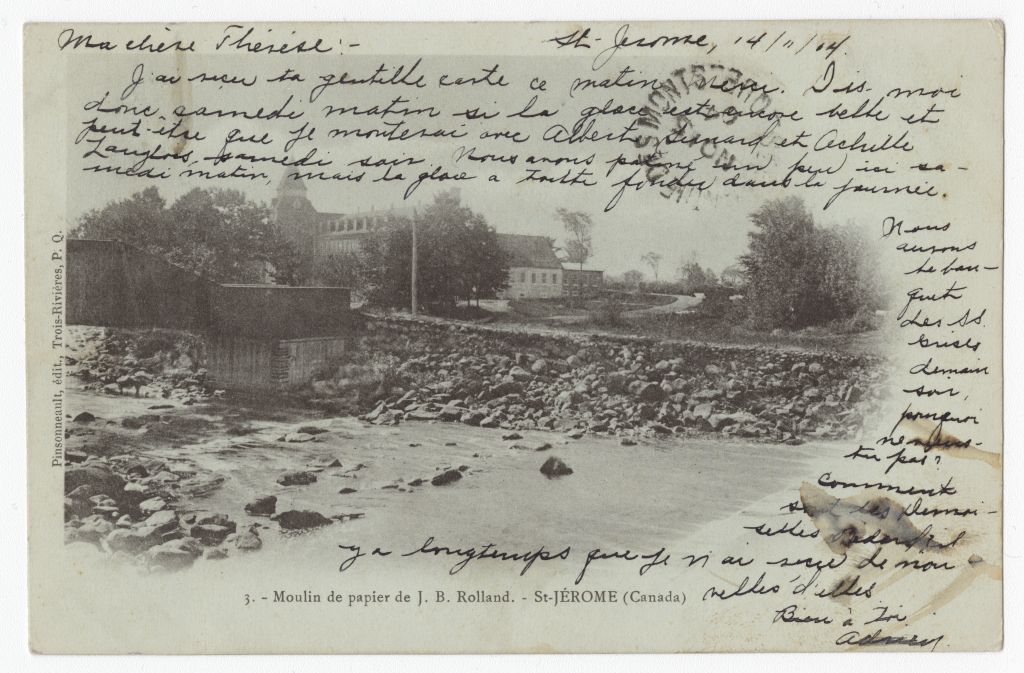 Ma chère Thérèse:-
St-Jerome, 14/11/04.
J'ai reçu ta gentille carte ce matin, merci. Dis-moi
donc samedi matin si la glace est encore belle et
peut-être que je monterai avec Albert, Bernard et Achille
Langlois, samedi soir. Nous avons patiné un peu ici sa-
medi matin, mais la glace a toute fondue dans la journée.
Nous
aurons
le ban-
quet
des SS.
Grises
demain
soir,
pourquoi
ne viens-
tu pas?
Comment
sont les Demoi-
selles
y a longtemps que je n'ai reçu de nou-
velles d'elles
Bien à Toi
Pinsonneault, édit., Trois-Rivières, P. Q.
3. - Moulin de papier de J. B. Rolland. - St-JÉROME (Canada)